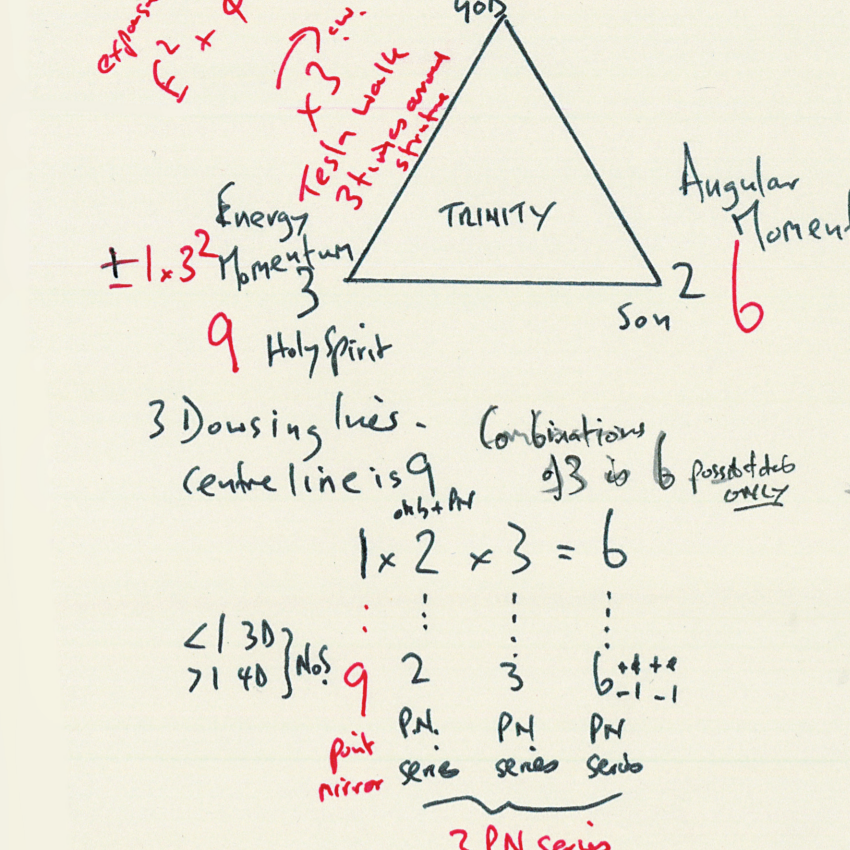 GOD
E² x
x 3 cw.
Tesla walk
3 times around
structure
TRINITY
Energy
Momentum
± 1 x 3²
3
9 Holy Spirit
Angular
Moment
2
Son
6
3 Dowsing lines.
centre line is 9
Combinations
of 3 is 6
ONLY
1 x 2 x 3 = 6
<1 3D
>1 4D
} Nos.
9 2 3 6
-1 -1
point
mirror
P.N.
series
PN
series
PN
series
3 PN series